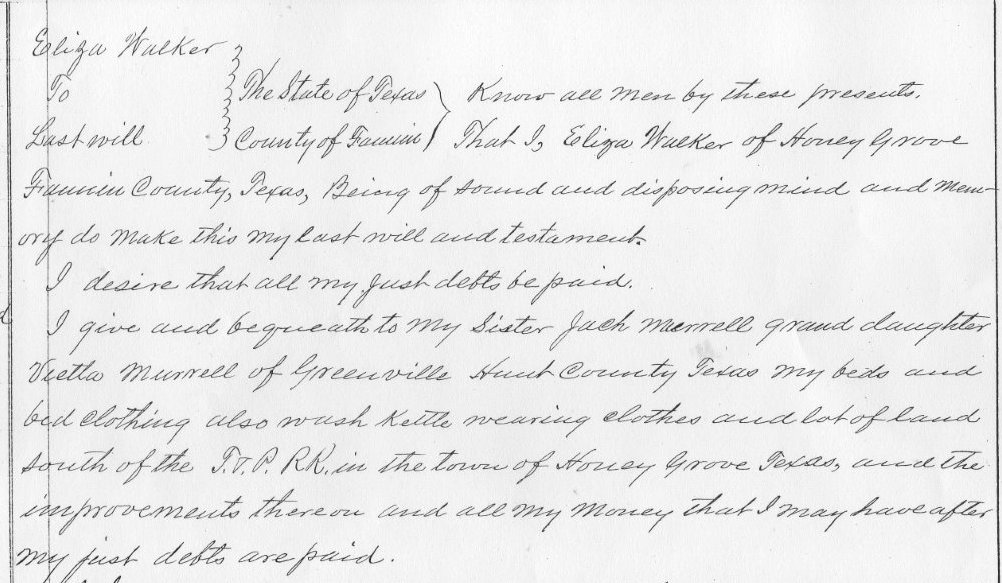 Eliza Walker
To The State of Texas Know all men by these presents.
Last will County of Fannin That I, Eliza Walker of Honey Grove
Fannin County, Texas, Being of sound and disposing mind and mem-
ory do make this my last will and testament.
I desire that all my just debts be paid.
I give and bequeath to my Sister Jack Murrell grand daughter
Vietta Murrell of Greenville Hunt County Texas my beds and
bed clothing also wash Kettle wearing clothes and lot of land
south of the T. & P. RR. in the town of Honey Grove Texas, and the
improvements thereon and all my money that I may have after
my just debts are paid.